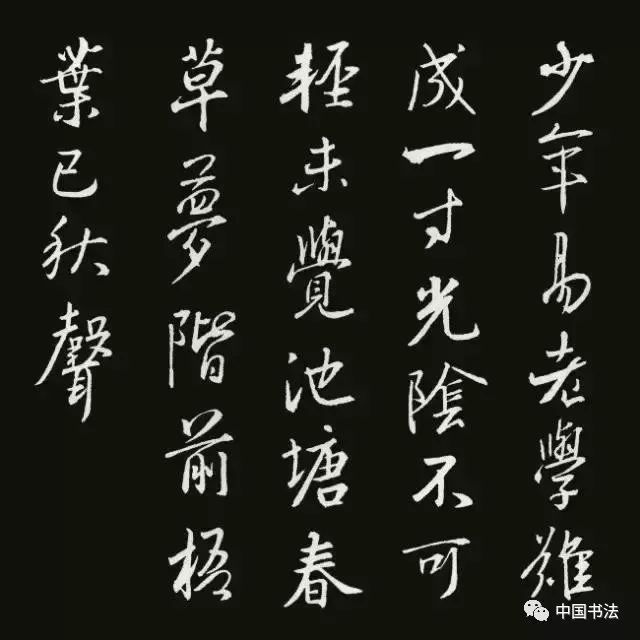 少年易老學難
成一寸光陰不可
輕未覺池塘春
草夢階前梧
葉已秋聲
中国书法